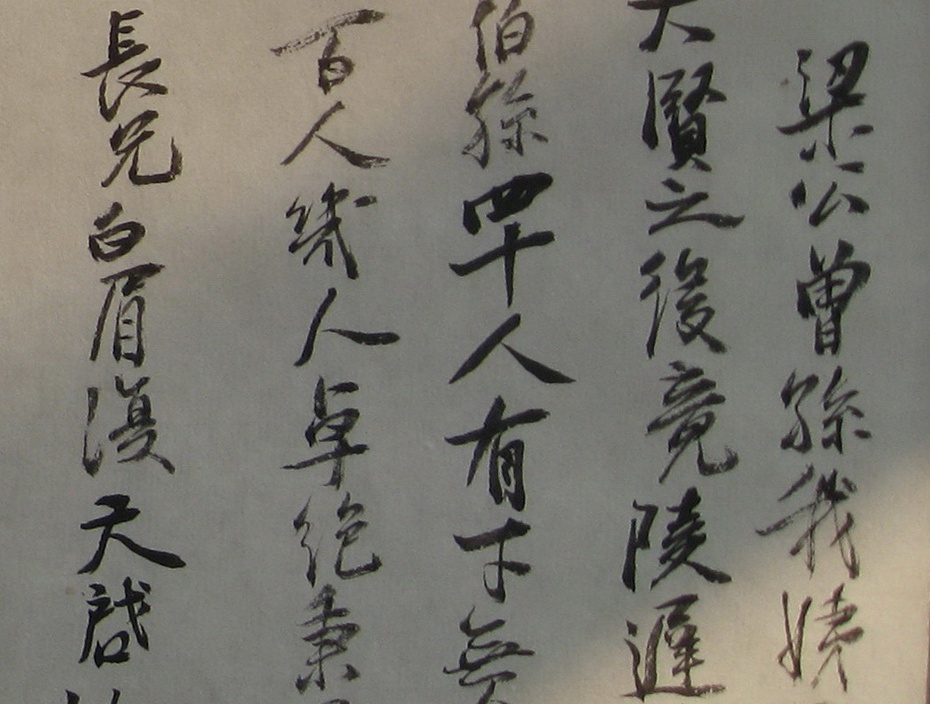 梁公曾孫我姨
大賢之後竟陵遲
伯孫四十人有才無
百人幾人卓絕秉
長兄白眉復天啓